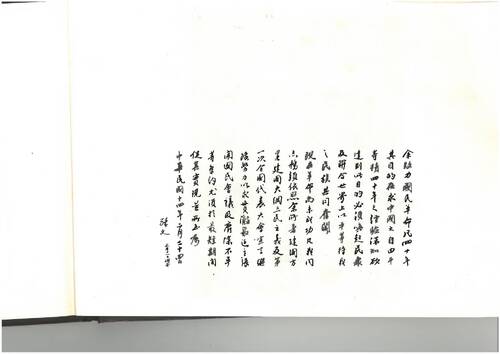 余致力國民革命凡四十年
其目的在求中國之自由平
等積四十年之經驗深知欲
達到此目的必須喚起民衆
及聯合世界上以平等待我
之民族共同奮鬪
現在革命尚未成功凡我同
志務須依照余所著建國方
畧建國大綱三民主義及第
一次全國代表大會宣言繼
續努力以求貫澈最近主張
開國民會議及廢除不平
等條約尤須於最短期間
促其實現是所至囑
中華民國十四年二月二十四日
孫文